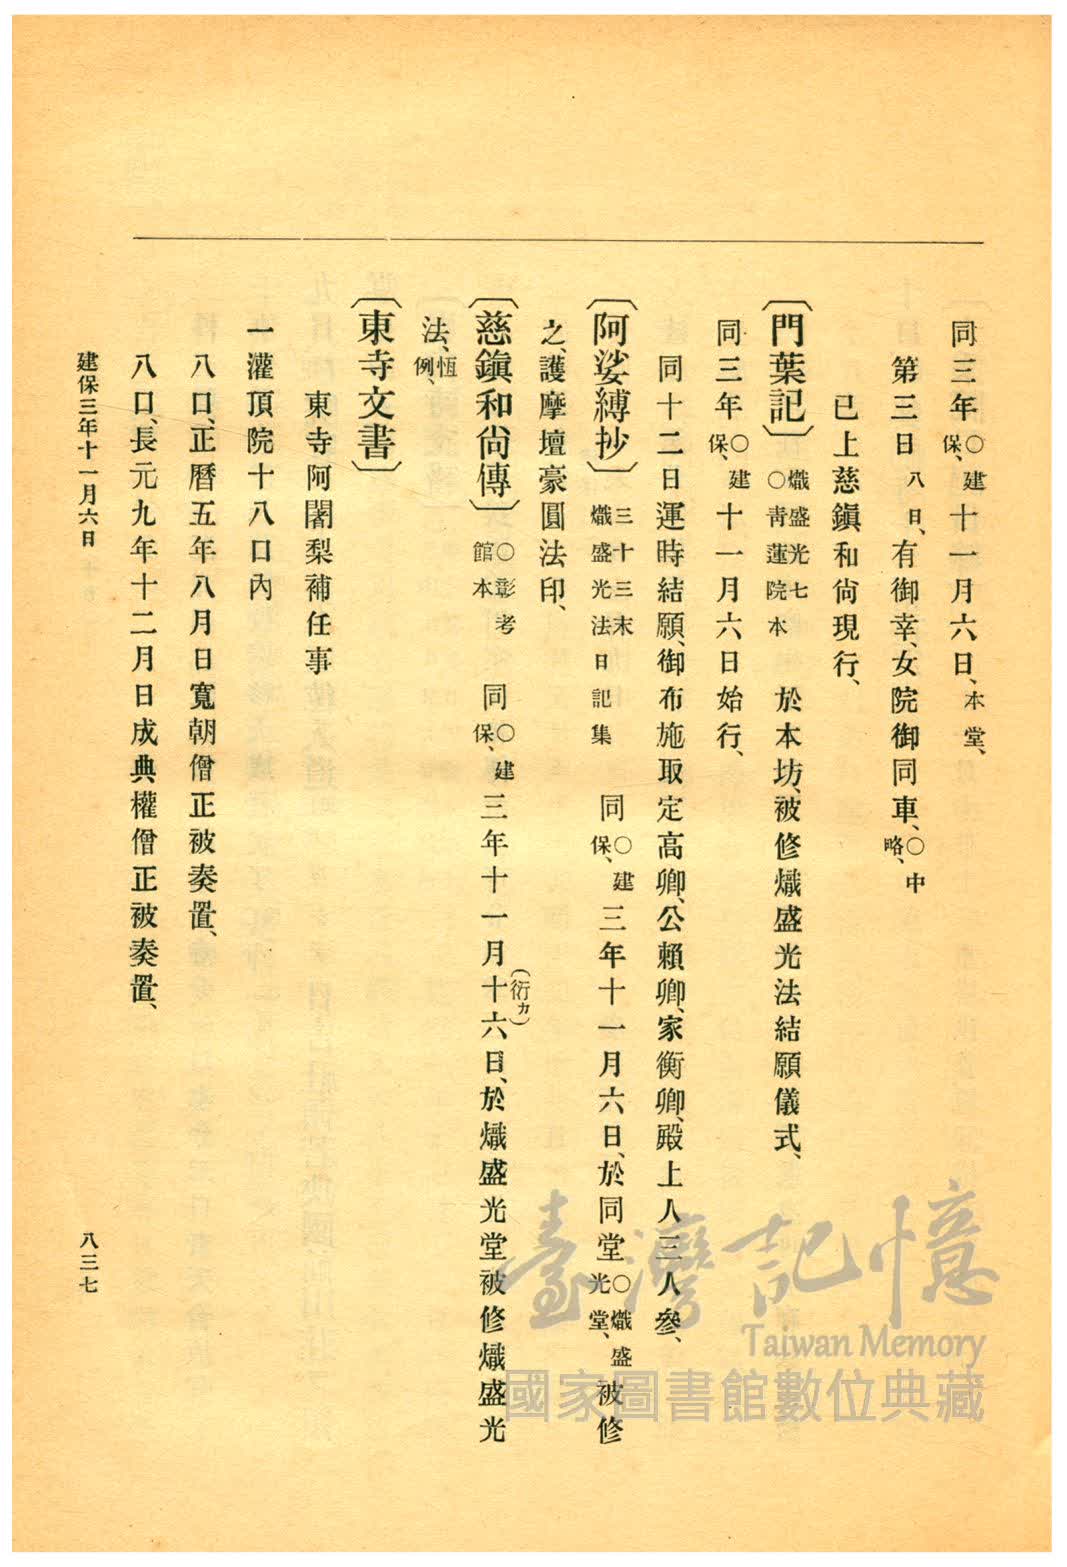 同三年○建保、十一月六日、本堂、
第三日八日、有御幸、女院御同車、○中略、
已上慈鎭和尙現行、
〔門葉記〕熾盛光七○靑蓮院本 於本坊、被修熾盛光法結願儀式、
同三年○建保、十一月六日始行、
同十二日運時結願、御布施取定高卿、公賴卿、家衡卿、殿上人三人參、
〔阿娑縛抄〕三十三末熾盛光法日記集 同○建保、三年十一月六日、於同堂○熾盛光堂、被修
之、護摩壇豪圓法印、
〔慈鎭和尙傳〕○彰考館本 同○建保、三年十一月十(衍カ)六日、於熾盛光堂被修熾盛光
法、恆例、
〔東寺文書〕
東寺阿闍梨補任事
一灌頂院十八口內
八口、正曆五年八月日寬朝僧正被奏置、
八口、長元九年十二月日成典權僧正被奏置、
建保三年十一月六日
八三七
臺灣記憶
Taiwan Memory
國家圖書館數位典藏